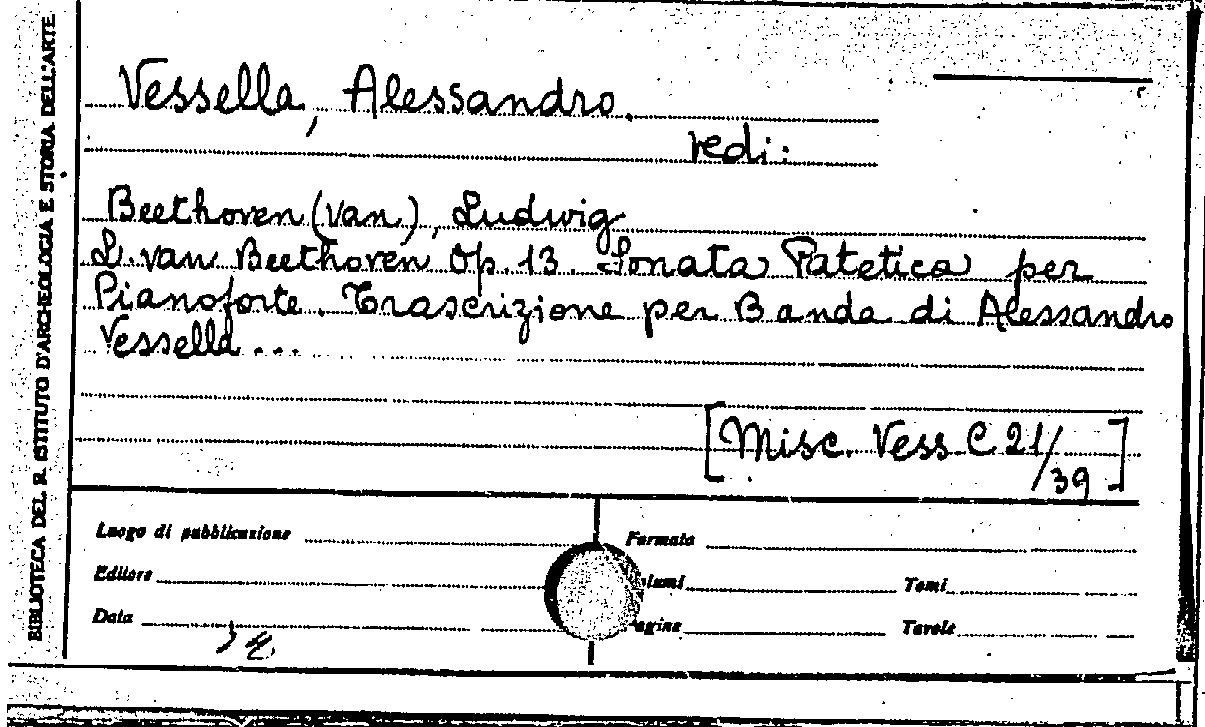 BIBLIOTECA DEL R. ISTITUTO D'ARCHEOLOGIA E STORIA DELL'ARTE
Vessella, Alessandro.
vedi:
Beethoven (van), Ludwig
L. van Beethoven Op. 13. Sonata Patetica per
Pianoforte. Trascrizione per Banda di Alessandro
Vessella...
[Misc. Vess C 21/39]
Luogo di pubblicazione
Formato
Editore
Tomi
Data
Tavole